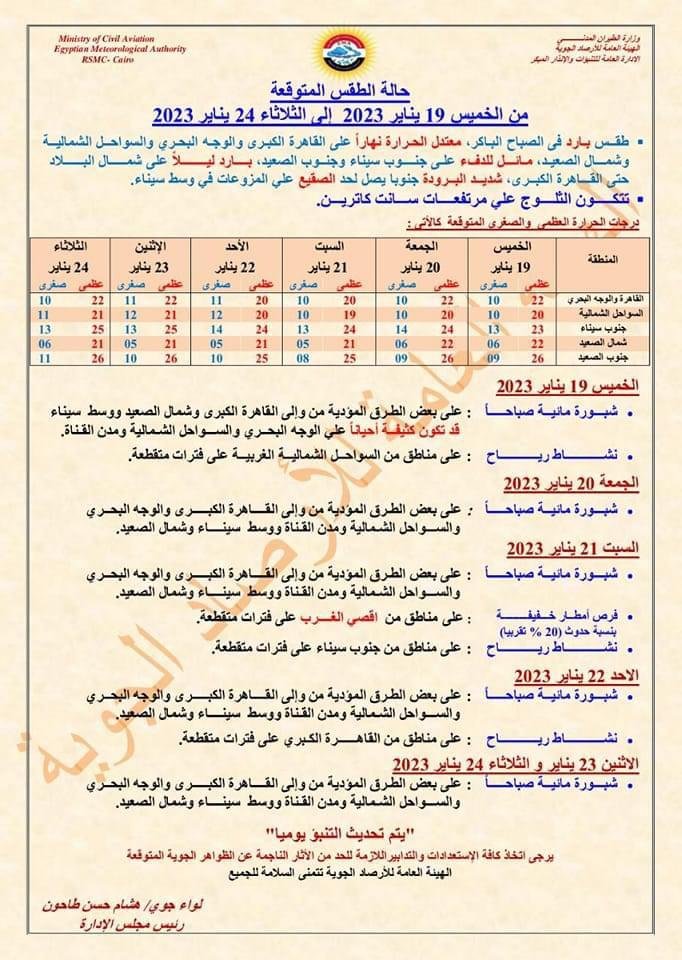 Ministry of Civil Aviation
Egyptian Meteorological Authority
RSMC- Cairo
وزارة الطيران المدني
الهيئة العامة للأرصاد الجوية
الإدارة العامة للتنبؤات والإنذار المبكر
حالة الطقس المتوقعة
من الخميس 19 يناير 2023 إلى الثلاثاء 24 يناير 2023
▪ طقس بارد فى الصباح الباكر، معتدل الحرارة نهاراً على القاهرة الكبرى والوجه البحري والسواحل الشمالية
وشمال الصعيد، مائل للدفء على جنوب سيناء وجنوب الصعيد، بارد ليلاً على شمال البلاد
حتى القاهرة الكبرى، شديد البرودة جنوبا يصل لحد الصقيع علي المزروعات في وسط سيناء.
▪ تتكون الثلوج علي مرتفعات سانت كاترين.
درجات الحرارة العظمى والصغرى المتوقعة كالآتي :
المنطقة الخميس الجمعة السبت الأحد الإثنين الثلاثاء
19 يناير 20 يناير 21 يناير 22 يناير 23 يناير 24 يناير
عظمى صغرى عظمى صغرى عظمى صغرى عظمى صغرى عظمى صغرى عظمى صغرى
القاهرة والوجه البحري 22 10 22 10 20 10 20 11 22 11 22 10
السواحل الشمالية 20 10 20 10 19 10 20 12 21 12 21 11
جنوب سيناء 23 13 24 14 24 13 24 14 25 13 25 13
شمال الصعيد 22 06 22 06 21 05 21 05 21 05 21 06
جنوب الصعيد 26 09 26 09 25 08 25 10 26 10 26 11
الخميس 19 يناير 2023
• شبورة مائية صباحاً : على بعض الطرق المؤدية من وإلى القاهرة الكبرى وشمال الصعيد ووسط سيناء
قد تكون كثيفة أحياناً علي الوجه البحري والسواحل الشمالية ومدن القناة.
• نشاط رياح : على مناطق من السواحل الشمالية الغربية على فترات متقطعة.
الجمعة 20 يناير 2023
• شبورة مائية صباحاً : على بعض الطرق المؤدية من وإلى القاهرة الكبرى والوجه البحري
والسواحل الشمالية ومدن القناة ووسط سيناء وشمال الصعيد.
السبت 21 يناير 2023
• شبورة مائية صباحاً : على بعض الطرق المؤدية من وإلى القاهرة الكبرى والوجه البحري
والسواحل الشمالية ومدن القناة ووسط سيناء وشمال الصعيد.
• فرص أمطار خفيفة : على مناطق من اقصي الغرب على فترات متقطعة.
بنسبة حدوث (20 % تقريبا)
• نشاط رياح : على مناطق من جنوب سيناء على فترات متقطعة.
الاحد 22 يناير 2023
• شبورة مائية صباحاً : على بعض الطرق المؤدية من وإلى القاهرة الكبرى والوجه البحري
والسواحل الشمالية ومدن القناة ووسط سيناء وشمال الصعيد.
• نشاط رياح : على مناطق من القاهرة الكبري على فترات متقطعة.
الاثنين 23 يناير و الثلاثاء 24 يناير 2023
• شبورة مائية صباحاً : على بعض الطرق المؤدية من وإلى القاهرة الكبرى والوجه البحري
والسواحل الشمالية ومدن القناة ووسط سيناء وشمال الصعيد.
"يتم تحديث التنبؤ يوميا"
يرجى اتخاذ كافة الإستعدادات والتدابير اللازمة للحد من الأثار الناجمة عن الظواهر الجوية المتوقعة
الهيئة العامة للأرصاد الجوية تتمنى السلامة للجميع
لواء جوي/ هشام حسن طاحون
رئيس مجلس الإدارة
العامة للأرصاد الجوية